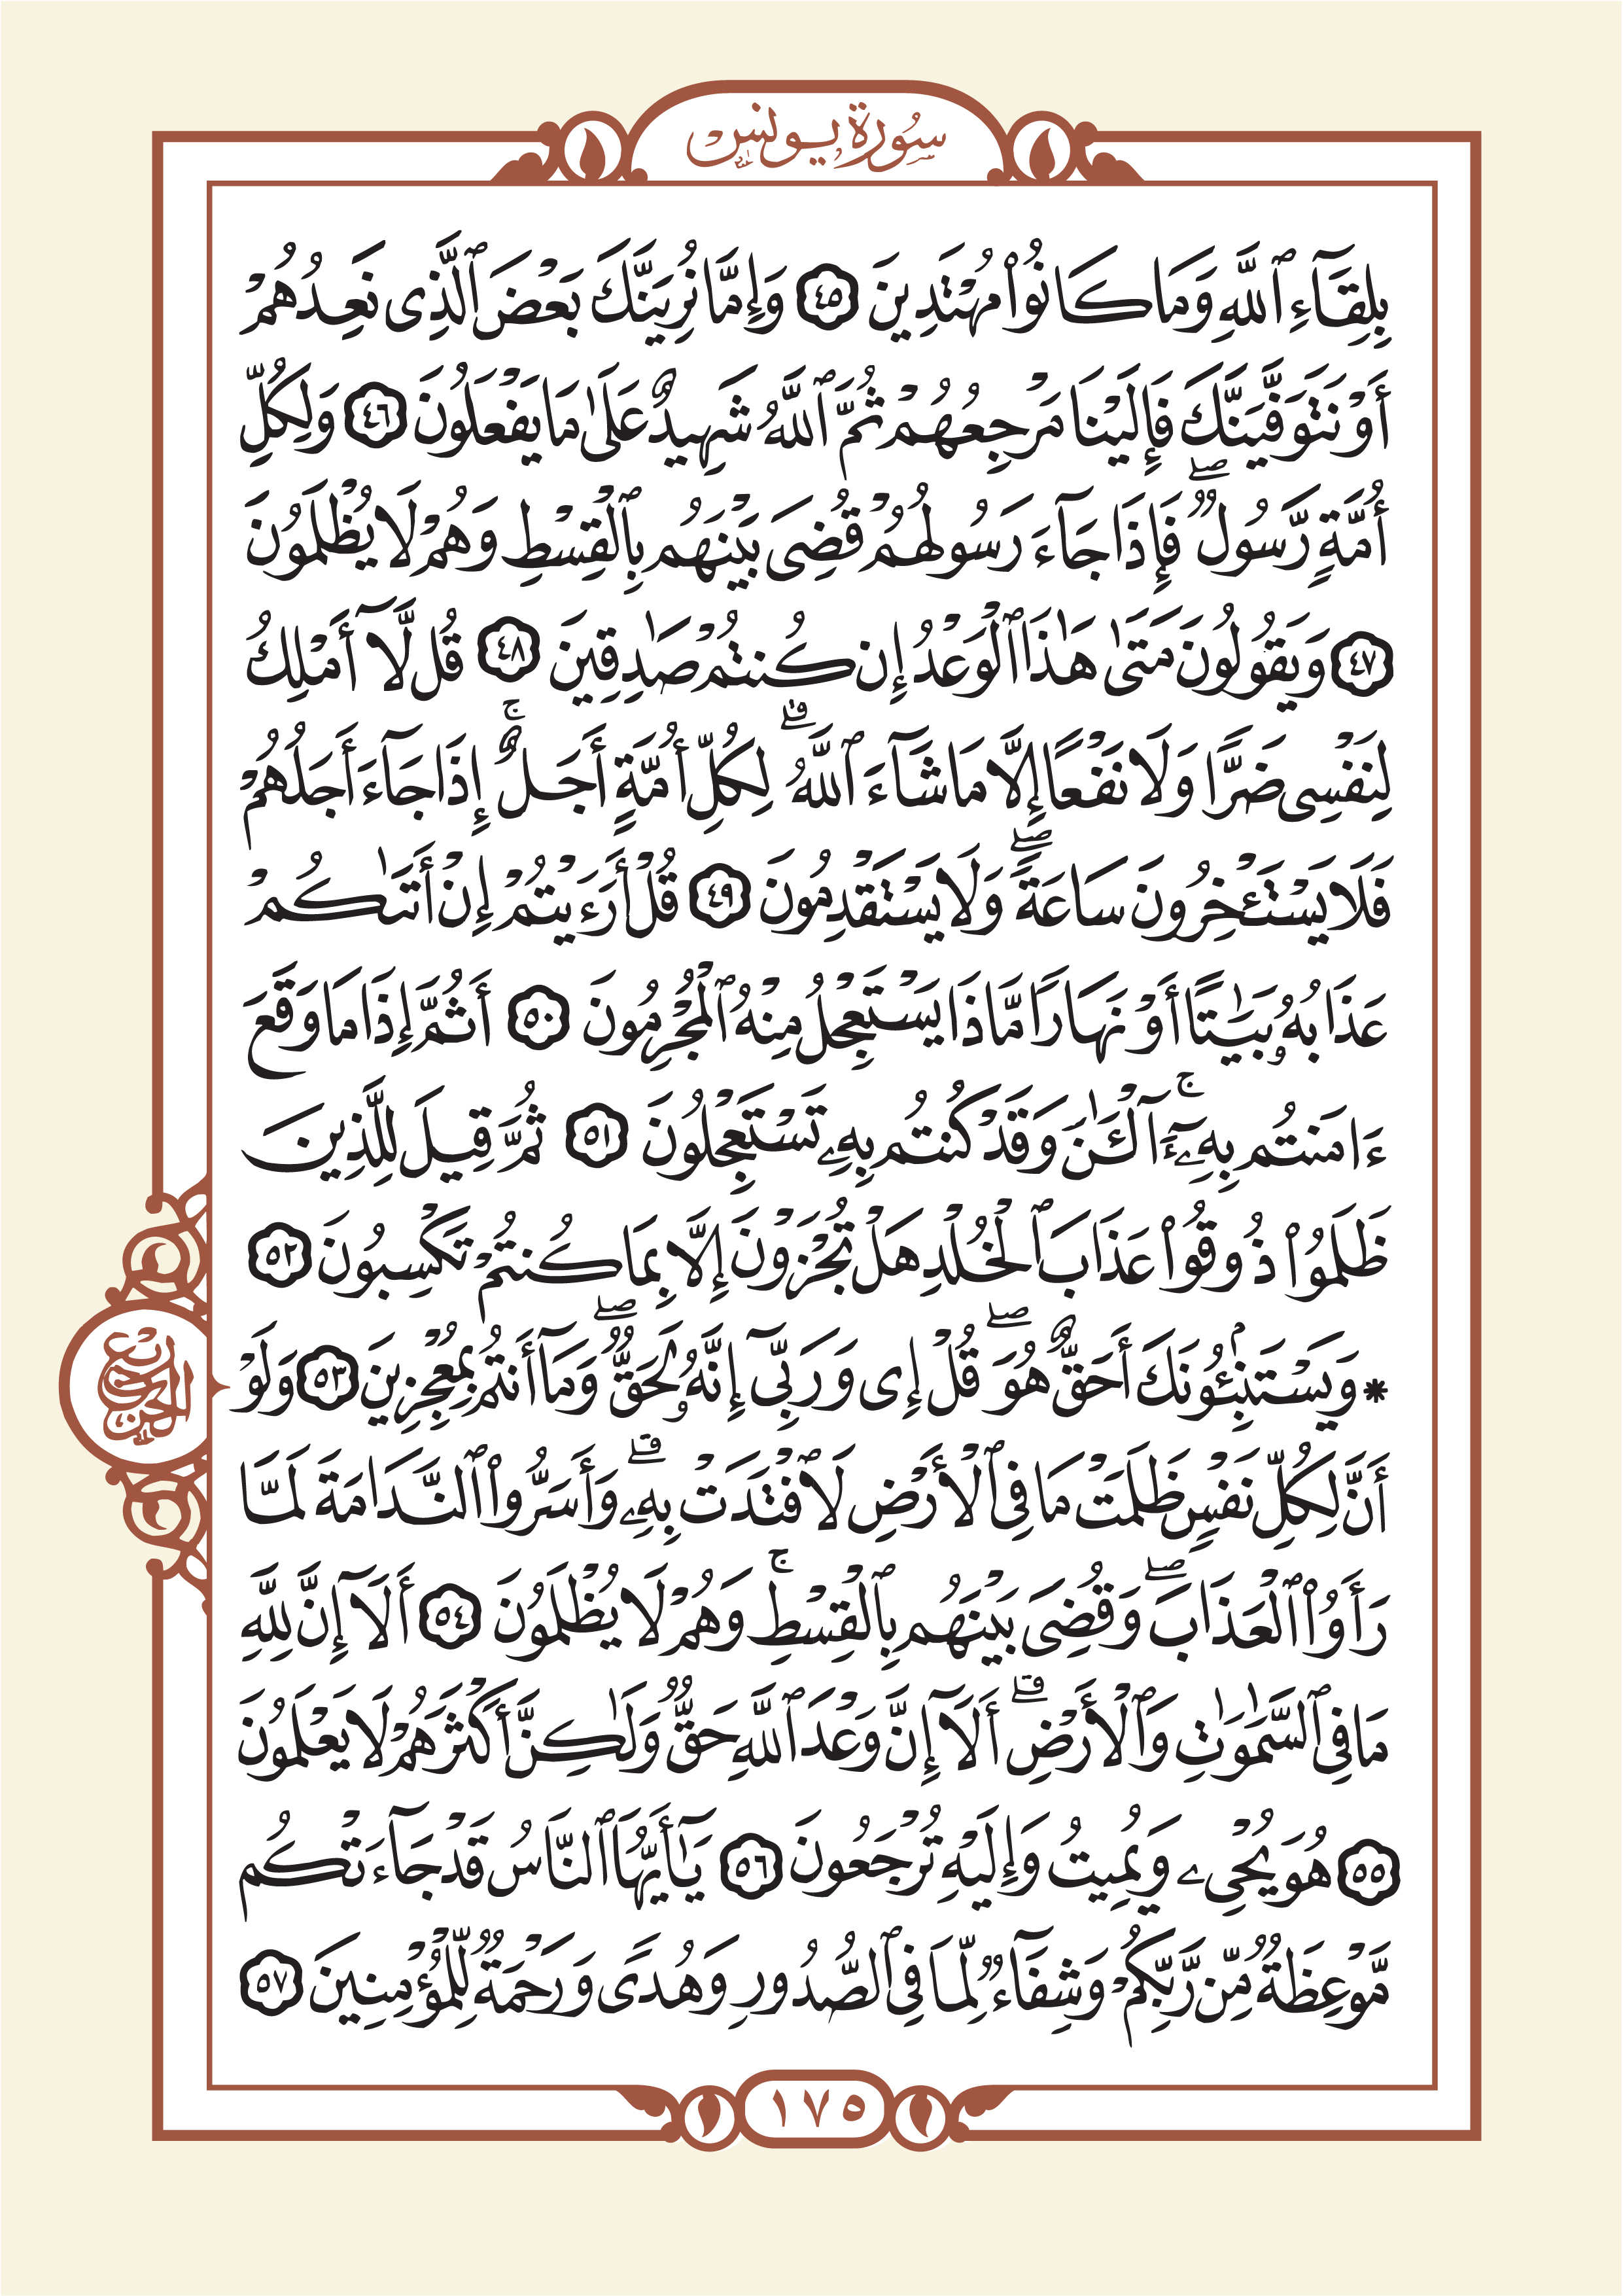 سُورَةُ يُونُسَ
بِلِقَآءِ ٱللَّهِ وَمَا كَانُوا۟ مُهْتَدِينَ ٤٥ وَإِمَّا نُرِيَنَّكَ بَعْضَ ٱلَّذِى نَعِدُهُمْ
أَوْ نَتَوَفَّيَنَّكَ فَإِلَيْنَا مَرْجِعُهُمْ ثُمَّ ٱللَّهُ شَهِيدٌ عَلَىٰ مَا يَفْعَلُونَ ٤٦ وَلِكُلِّ
أُمَّةٍ رَّسُولٌ ۖ فَإِذَا جَآءَ رَسُولُهُمْ قُضِىَ بَيْنَهُم بِٱلْقِسْطِ وَهُمْ لَا يُظْلَمُونَ
٤٧ وَيَقُولُونَ مَتَىٰ هَٰذَا ٱلْوَعْدُ إِن كُنتُمْ صَٰدِقِينَ ٤٨ قُل لَّآ أَمْلِكُ
لِنَفْسِى ضَرًّا وَلَا نَفْعًا إِلَّا مَا شَآءَ ٱللَّهُ ۗ لِكُلِّ أُمَّةٍ أَجَلٌ ۚ إِذَا جَآءَ أَجَلُهُمْ
فَلَا يَسْتَـْٔخِرُونَ سَاعَةً ۖ وَلَا يَسْتَقْدِمُونَ ٤٩ قُلْ أَرَءَيْتُمْ إِنْ أَتَىٰكُمْ
عَذَابُهُۥ بَيَٰتًا أَوْ نَهَارًا مَّاذَا يَسْتَعْجِلُ مِنْهُ ٱلْمُجْرِمُونَ ٥٠ أَثُمَّ إِذَا مَا وَقَعَ
ءَامَنتُم بِهِۦٓ ۚ ءَآلْـَٰٔنَ وَقَدْ كُنتُم بِهِۦ تَسْتَعْجِلُونَ ٥١ ثُمَّ قِيلَ لِلَّذِينَ
ظَلَمُوا۟ ذُوقُوا۟ عَذَابَ ٱلْخُلْدِ هَلْ تُجْزَوْنَ إِلَّا بِمَا كُنتُمْ تَكْسِبُونَ ٥٢
* وَيَسْتَنۢبِـُٔونَكَ أَحَقٌّ هُوَ ۖ قُلْ إِى وَرَبِّىٓ إِنَّهُۥ لَحَقٌّ ۖ وَمَآ أَنتُم بِمُعْجِزِينَ ٥٣ وَلَوْ
أَنَّ لِكُلِّ نَفْسٍ ظَلَمَتْ مَا فِى ٱلْأَرْضِ لَٱفْتَدَتْ بِهِۦ ۗ وَأَسَرُّوا۟ ٱلنَّدَامَةَ لَمَّا
رَأَوُا۟ ٱلْعَذَابَ ۖ وَقُضِىَ بَيْنَهُم بِٱلْقِسْطِ ۚ وَهُمْ لَا يُظْلَمُونَ ٥٤ أَلَآ إِنَّ لِلَّهِ
مَا فِى ٱلسَّمَٰوَٰتِ وَٱلْأَرْضِ ۗ أَلَآ إِنَّ وَعْدَ ٱللَّهِ حَقٌّ وَلَٰكِنَّ أَكْثَرَهُمْ لَا يَعْلَمُونَ
٥٥ هُوَ يُحْىِۦ وَيُمِيتُ وَإِلَيْهِ تُرْجَعُونَ ٥٦ يَٰٓأَيُّهَا ٱلنَّاسُ قَدْ جَآءَتْكُم
مَّوْعِظَةٌ مِّن رَّبِّكُمْ وَشِفَآءٌ لِّمَا فِى ٱلصُّدُورِ وَهُدًى وَرَحْمَةٌ لِّلْمُؤْمِنِينَ ٥٧
ربع الحزب
١٧٥